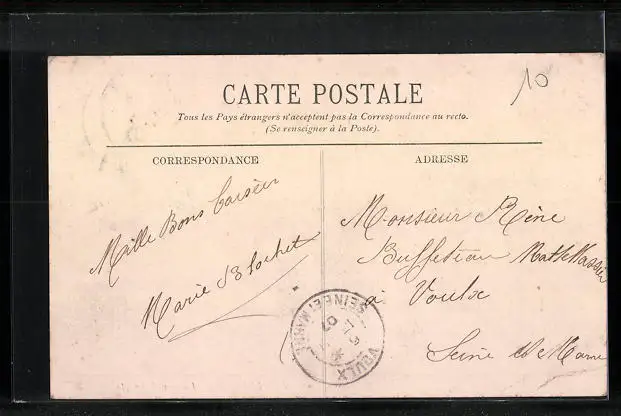 10
CARTE POSTALE
Tous les Pays étrangers n'acceptent pas la Correspondance au recto.
(Se renseigner à la Poste).
CORRESPONDANCE
ADRESSE
Mille Bons Baisers
Marie
Monsieur Réne
Buffeteau
à Voulx
Seine et Marne
VOULX
SEINE-ET-MARNE
07